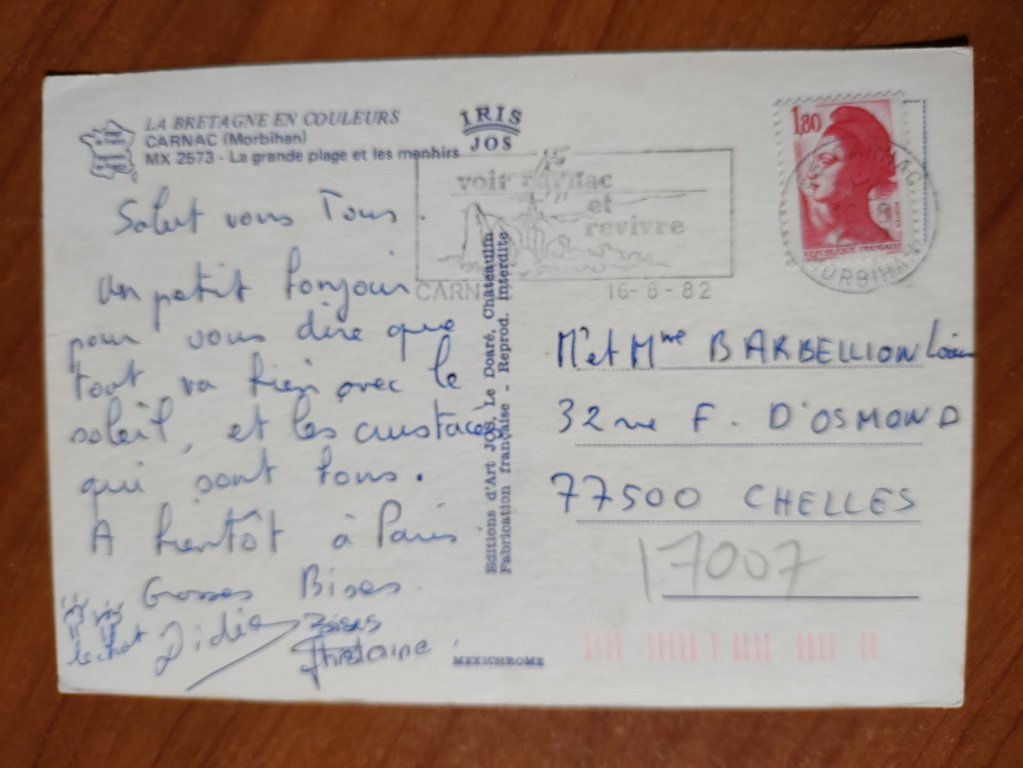 LA BRETAGNE EN COULEURS
CARNAC (Morbihan)
MX 2573 - La grande plage et les menhirs
IRIS
JOS
voir carnac
et
revivre
16-8-82
1,80
REPUBLIQUE FRANÇAISE
MORBIHAN
Salut vous Tous.
un petit bonjour
pour vous dire que
tout va bien avec le
soleil, et les crustacés
qui sont bons.
A bientôt à Paris
Grosses Bises.
le chat
Didier
Bises
Ghislaine
Editions d'Art JOS, Le Doaré, Châteaulin
Fabrication française - Reprod. interdite
MEXICHROME
Mr et Mme BARBELLION
32 rue F. D'OSMOND
77500 CHELLES
17007